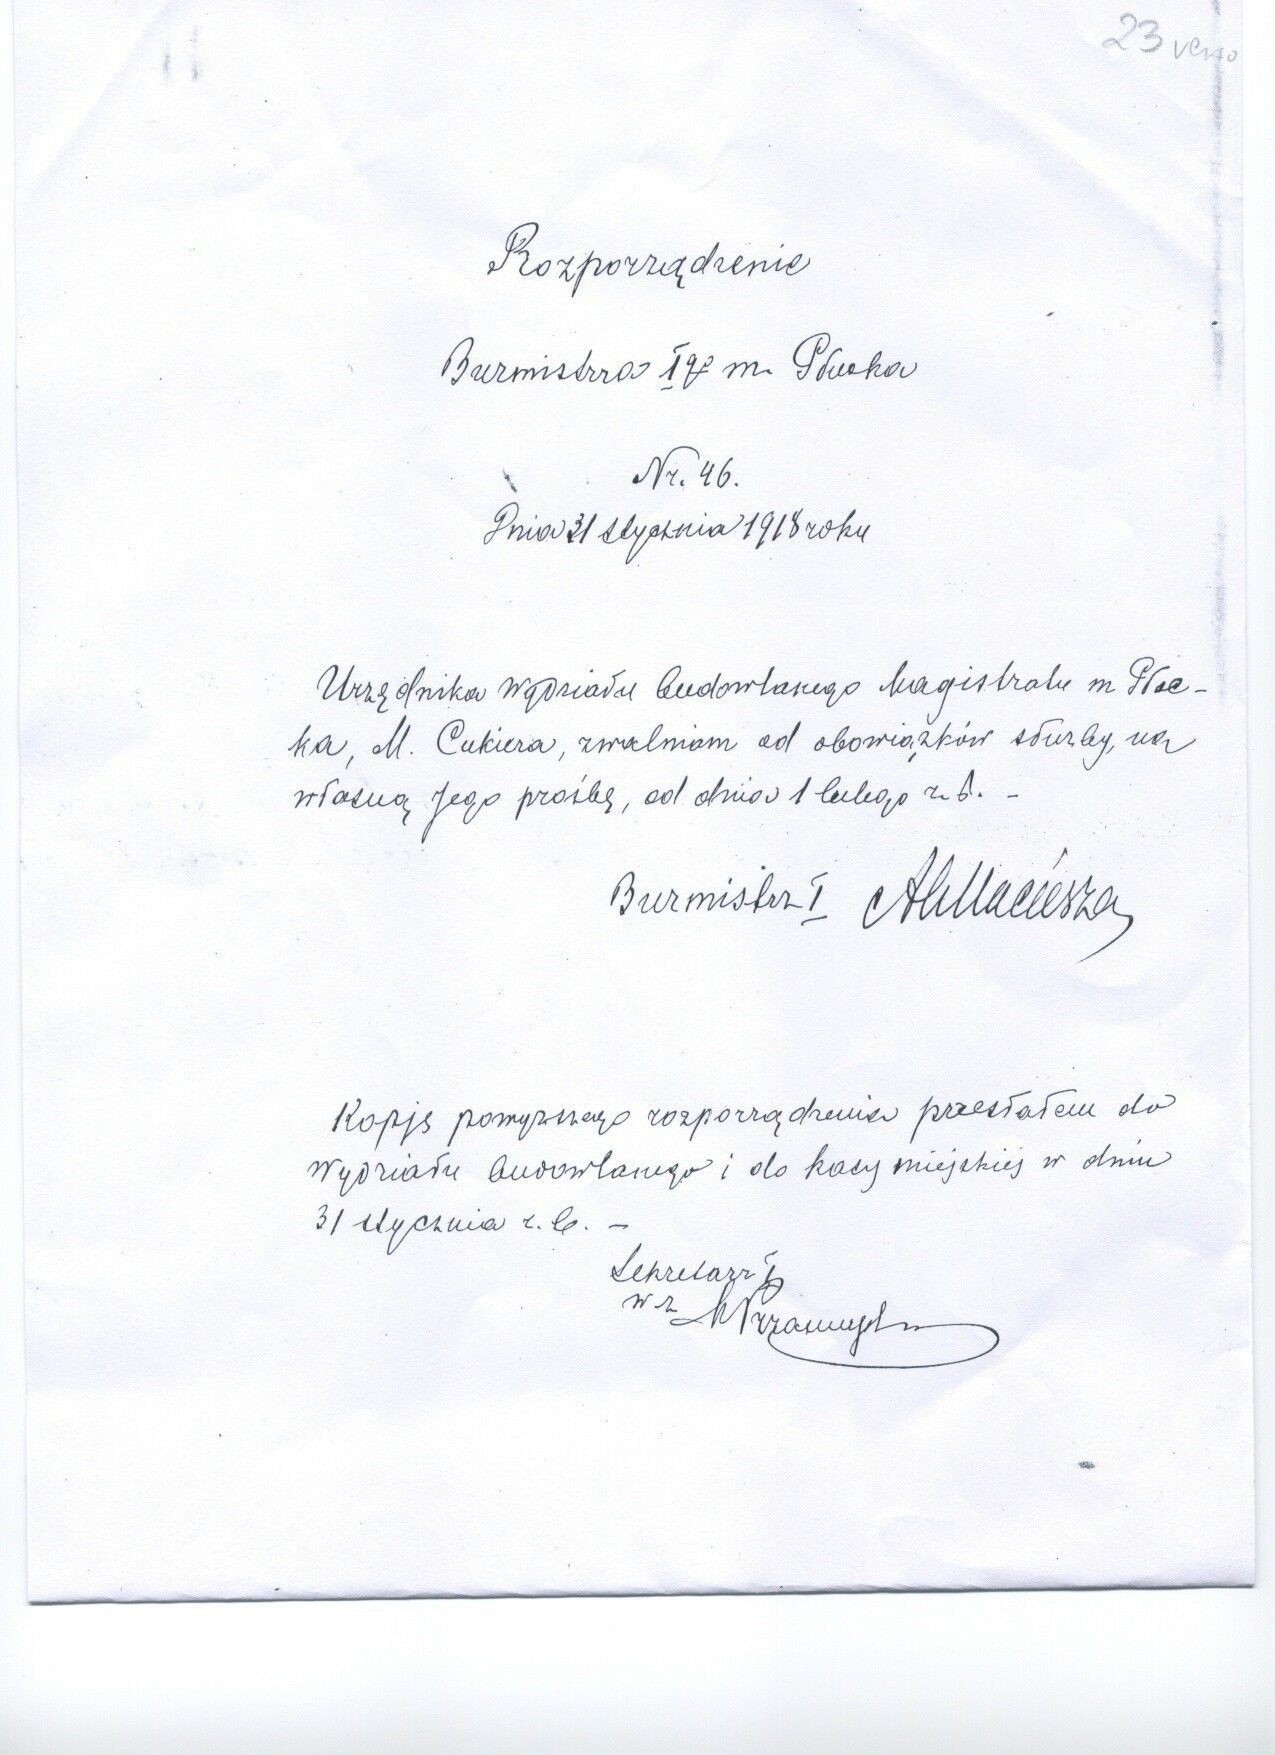 23 verso
Rozporządzenie
Burmistrza I go m. Płocka
Nr. 46.
Dnia 31 stycznia 1918 roku
Urzędnika Wydziału budowlanego Magistratu m Płoc-
ka, M. Cukiera, zwalniam od obowiązków służby, na
własną Jego prośbę, od dnia 1 lutego r. b. -
Burmistrz I Al Maciesza
Kopję powyższego rozporządzenia przesłałem do
Wydziału budowlanego i do kasy miejskiej w dniu
31 stycznia r. b. -
Sekretarz I
w z